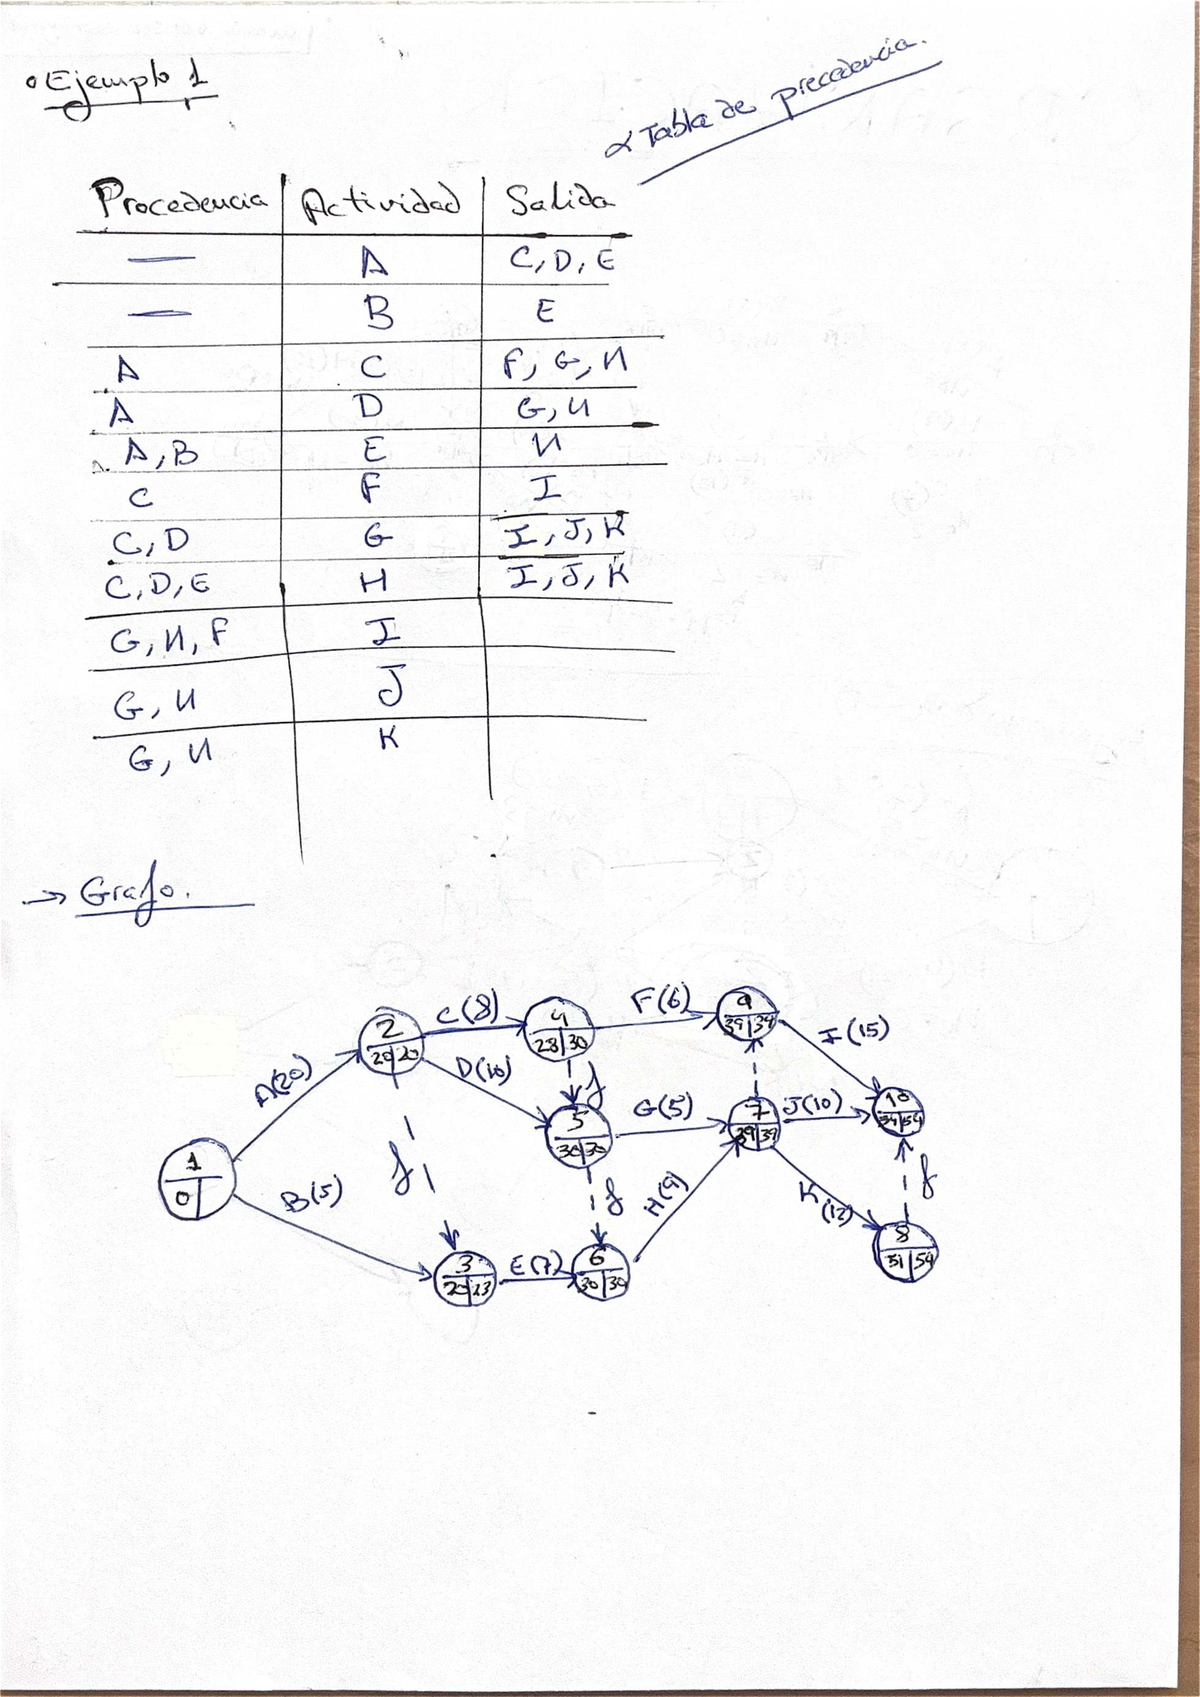 Ejemplo 1
Tabla de precedencia.
Procedencia | Actividad | Salida
— | A | C, D, E
— | B | E
A | C | F, G, H
A | D | G, H
A, B | E | H
C | F | I
C, D | G | I, J, K
C, D, E | H | I, J, K
G, H, F | I
G, H | J
G, H | K
→ Grafo.
C(8) F(6)
4 28 30
9 39 39
2 20 20
I(15)
A(20) D(10)
f
G(5) J(10)
10 54
5 30 30
7 39 39
1 0
f f H(9) K(12) f
B(5)
8 51 54
3 20 23
E(7)
6 30 30